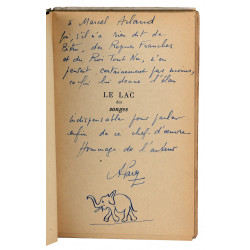 à Marcel Arland
qui, s'il n'a rien dit de
Bitru, des Kognes Franches
et du Rien Tout Nu, n'en
pensait certainement pas moins,
ce qui lui donne l'élan
LE LAC
des
songes
indispensable pour parler
enfin de ce chef-d'œuvre
Hommage de l'auteur